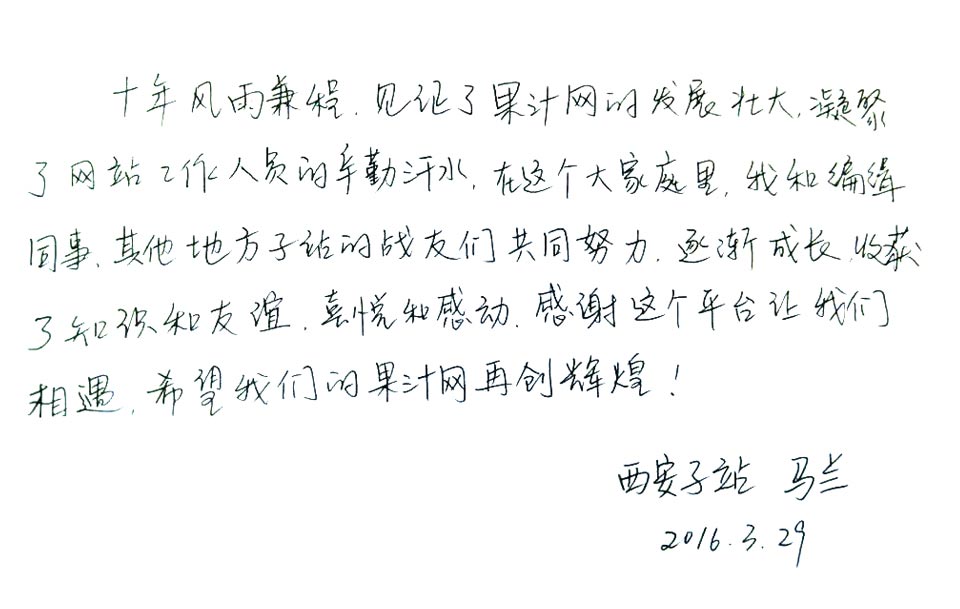 十年风雨兼程,见证了果汁网的发展壮大,凝聚
了网站工作人员的辛勤汗水,在这个大家庭里,我和编辑
同事、其他地方子站的战友们共同努力,逐渐成长,收获
了知识和友谊,喜悦和感动,感谢这个平台让我们
相遇,希望我们的果汁网再创辉煌!
西安子站 马兰
2016.3.29